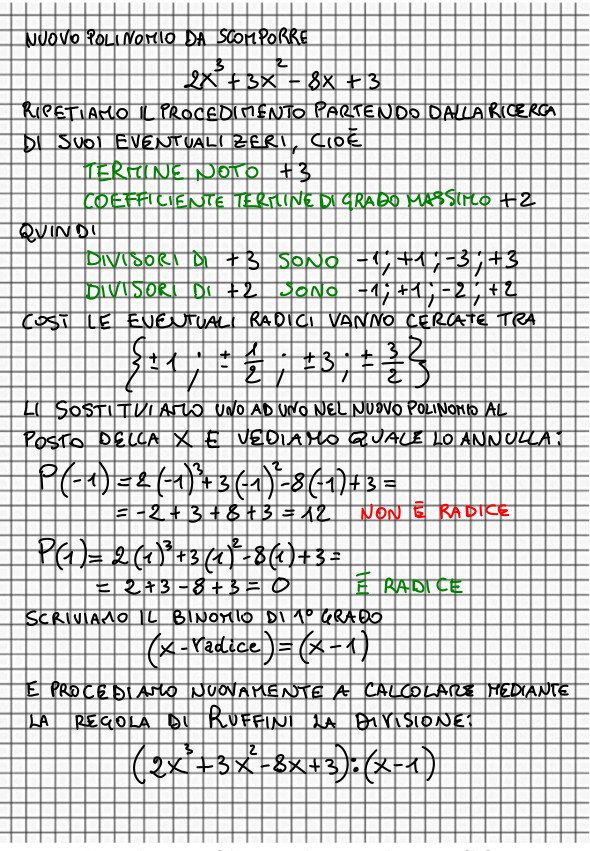 NUOVO POLINOMIO DA SCOMPORRE
2x³+3x²-8x+3
RIPETIAMO IL PROCEDIMENTO PARTENDO DALLA RICERCA
DI SUOI EVENTUALI ZERI, CIOÈ
TERMINE NOTO +3
COEFFICIENTE TERMINE DI GRADO MASSIMO +2
QUINDI
DIVISORI DI +3 SONO -1; +1; -3; +3
DIVISORI DI +2 SONO -1; +1; -2; +2
COSÌ LE EVENTUALI RADICI VANNO CERCATE TRA
{±1; ±1/2; ±3; ±3/2}
LI SOSTITUIAMO UNO AD UNO NEL NUOVO POLINOMIO AL
POSTO DELLA X E VEDIAMO QUALE LO ANNULLA:
P(-1)=2(-1)³+3(-1)²-8(-1)+3=
=-2+3+8+3=12 NON È RADICE
P(1)=2(1)³+3(1)²-8(1)+3=
= 2+3-8+3=0 È RADICE
SCRIVIAMO IL BINOMIO DI 1° GRADO
(x-radice)=(x-1)
E PROCEDIAMO NUOVAMENTE A CALCOLARE MEDIANTE
LA REGOLA DI RUFFINI LA DIVISIONE:
(2x³+3x²-8x+3):(x-1)